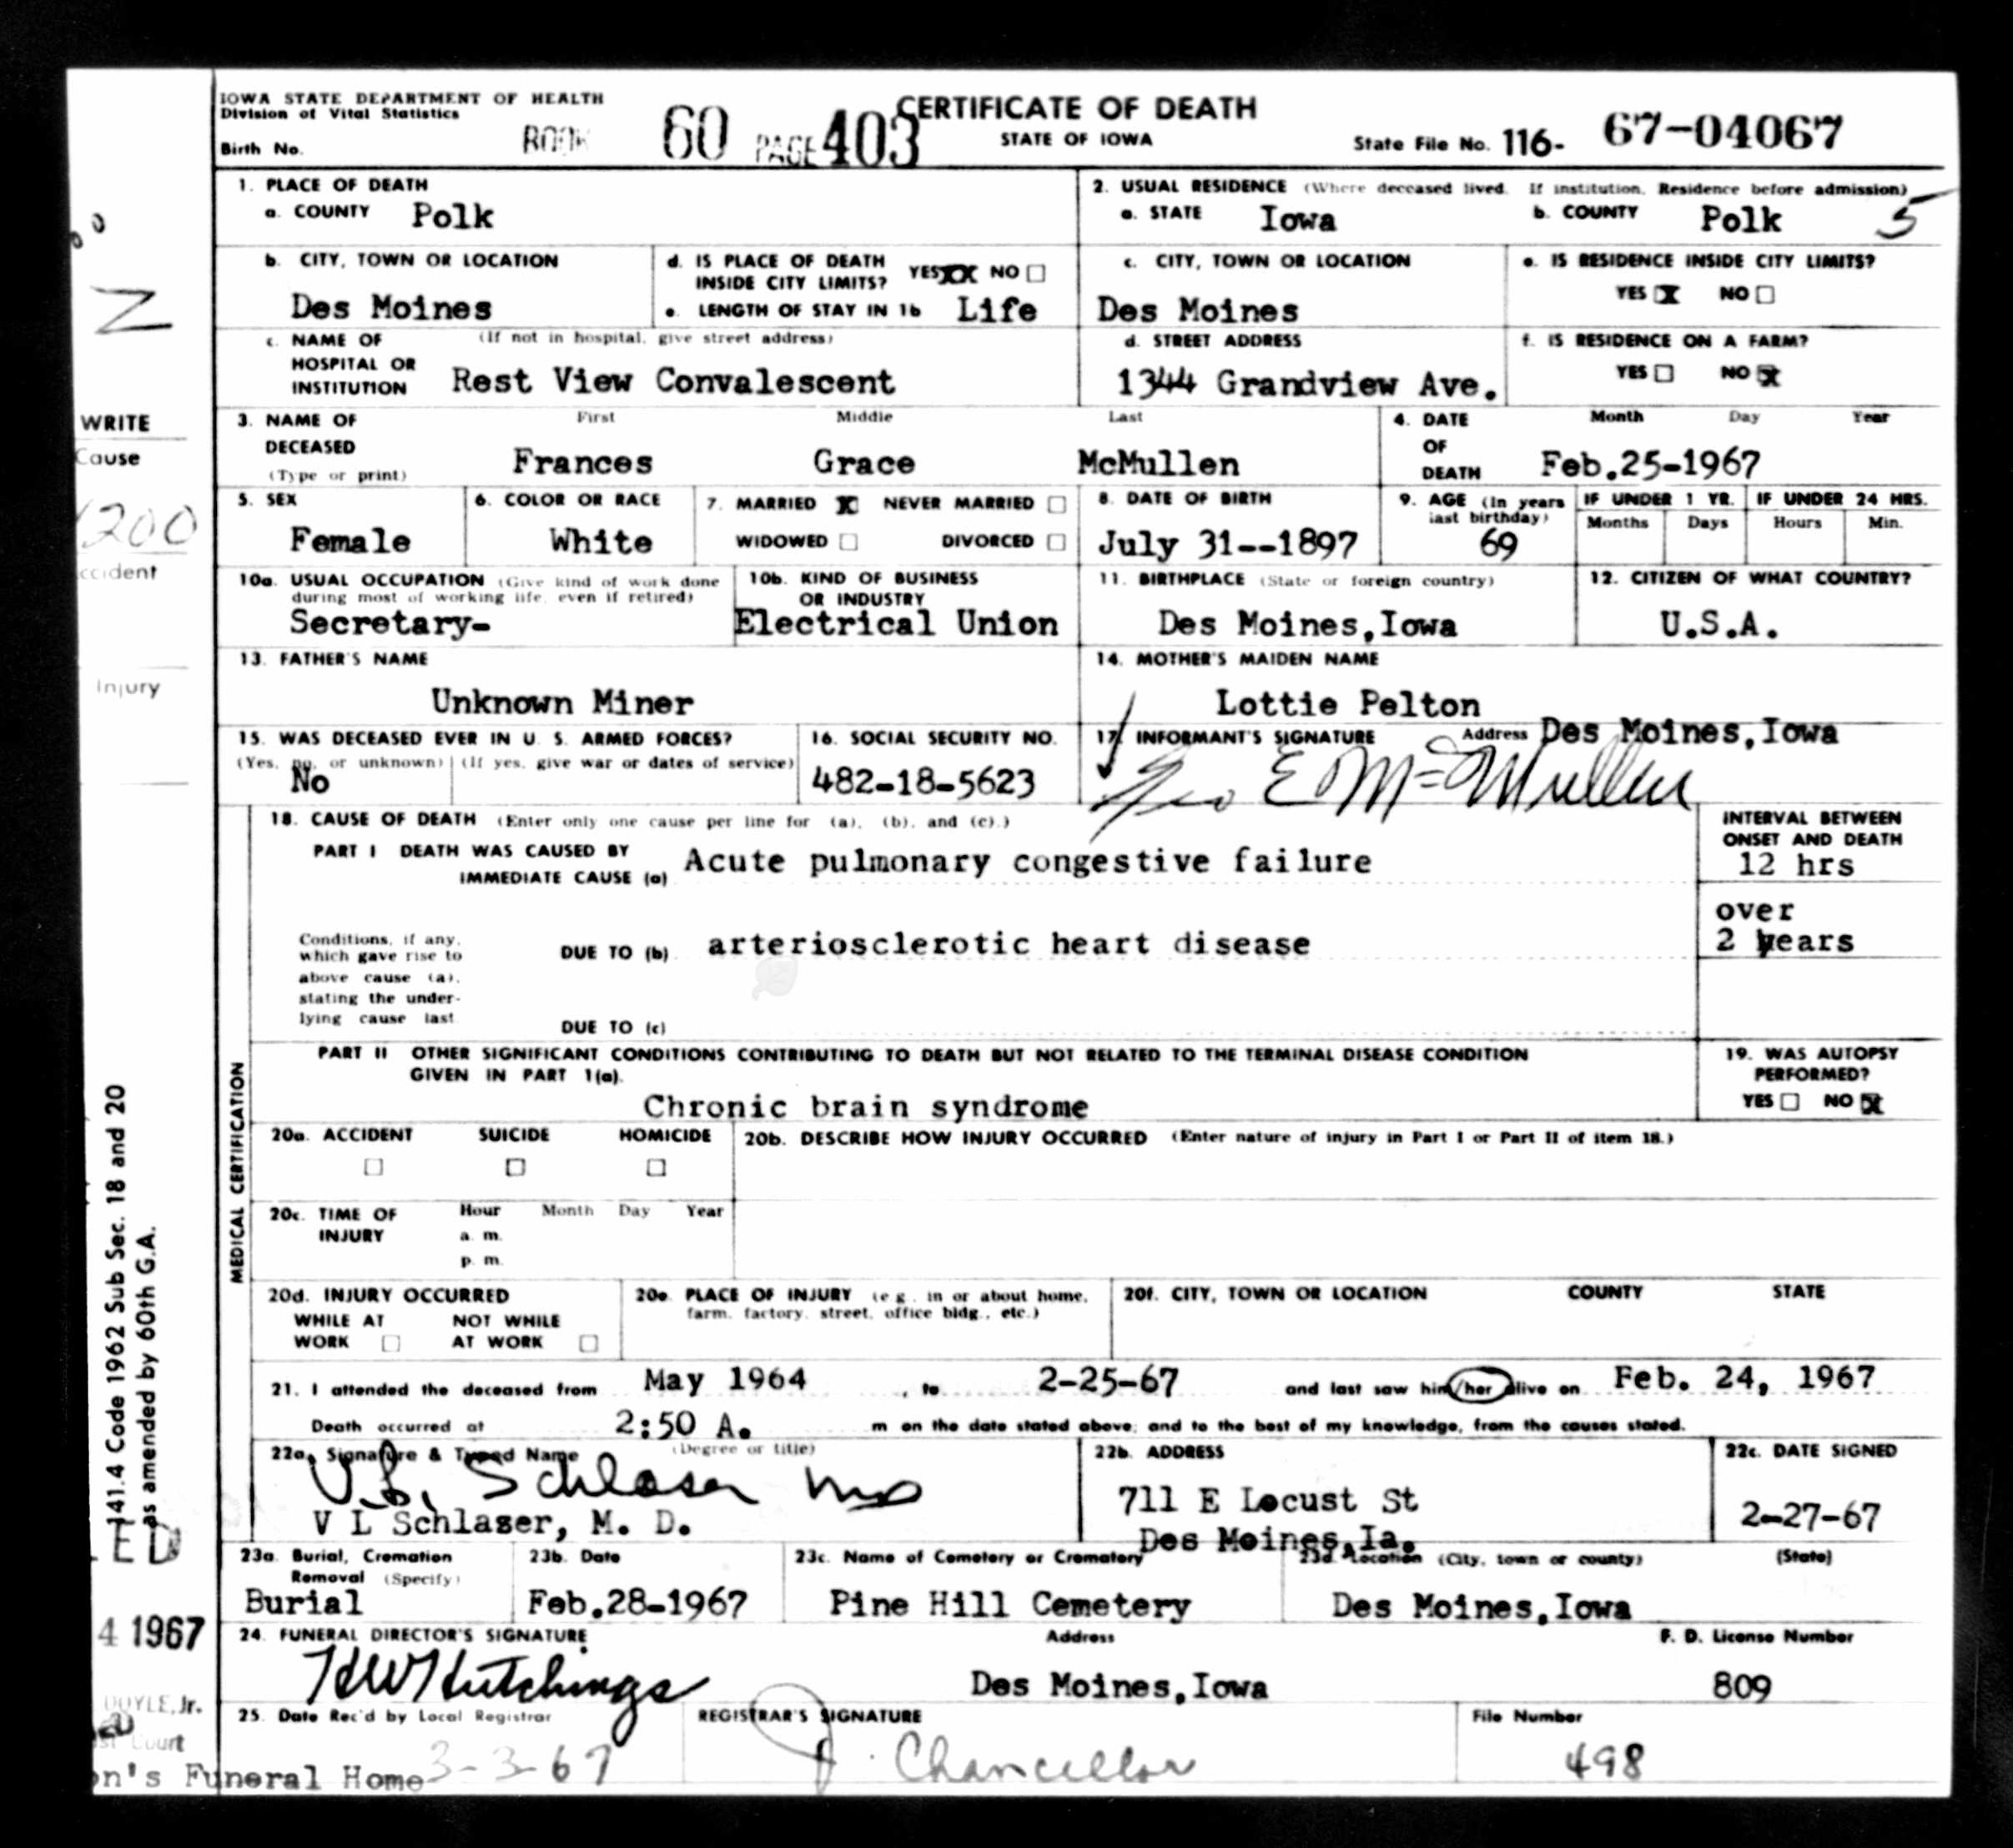 IOWA STATE DEPARTMENT OF HEALTH
Division of Vital Statistics
Birth No.
BOOK 60 PAGE 403
CERTIFICATE OF DEATH
STATE OF IOWA
State File No. 116- 67-04067
1. PLACE OF DEATH
a. COUNTY Polk
2. USUAL RESIDENCE (Where deceased lived. If institution, Residence before admission)
a. STATE Iowa b. COUNTY Polk 5
b. CITY, TOWN OR LOCATION
Des Moines
d. IS PLACE OF DEATH INSIDE CITY LIMITS? YES XX NO
e. LENGTH OF STAY IN 1b Life
c. CITY, TOWN OR LOCATION
Des Moines
e. IS RESIDENCE INSIDE CITY LIMITS?
YES X NO
c. NAME OF HOSPITAL OR INSTITUTION (If not in hospital, give street address)
Rest View Convalescent
d. STREET ADDRESS
1344 Grandview Ave.
f. IS RESIDENCE ON A FARM?
YES NO X
3. NAME OF DECEASED (Type or print)
First Middle Last
Frances Grace McMullen
4. DATE OF DEATH Month Day Year
Feb.25-1967
5. SEX
Female
6. COLOR OR RACE
White
7. MARRIED X NEVER MARRIED
WIDOWED DIVORCED
8. DATE OF BIRTH
July 31--1897
9. AGE (In years last birthday)
69
IF UNDER 1 YR. IF UNDER 24 HRS.
Months Days Hours Min.
10a. USUAL OCCUPATION (Give kind of work done during most of working life, even if retired)
Secretary-
10b. KIND OF BUSINESS OR INDUSTRY
Electrical Union
11. BIRTHPLACE (State or foreign country)
Des Moines,Iowa
12. CITIZEN OF WHAT COUNTRY?
U.S.A.
13. FATHER'S NAME
Unknown Miner
14. MOTHER'S MAIDEN NAME
Lottie Pelton
15. WAS DECEASED EVER IN U. S. ARMED FORCES?
(Yes, no, or unknown) (If yes, give war or dates of service)
No
16. SOCIAL SECURITY NO.
482-18-5623
17. INFORMANT'S SIGNATURE Address Des Moines,Iowa
Geo E McMullen
18. CAUSE OF DEATH (Enter only one cause per line for (a), (b), and (c).)
INTERVAL BETWEEN ONSET AND DEATH
PART I DEATH WAS CAUSED BY
IMMEDIATE CAUSE (a) Acute pulmonary congestive failure
12 hrs
Conditions, if any, which gave rise to above cause (a), stating the under-lying cause last
DUE TO (b) arteriosclerotic heart disease
over
2 years
DUE TO (c)
PART II OTHER SIGNIFICANT CONDITIONS CONTRIBUTING TO DEATH BUT NOT RELATED TO THE TERMINAL DISEASE CONDITION
GIVEN IN PART 1(a).
Chronic brain syndrome
19. WAS AUTOPSY PERFORMED?
YES NO X
20a. ACCIDENT SUICIDE HOMICIDE
20b. DESCRIBE HOW INJURY OCCURRED (Enter nature of injury in Part I or Part II of item 18.)
20c. TIME OF INJURY
Hour Month Day Year
a. m.
p. m.
20d. INJURY OCCURRED
WHILE AT WORK NOT WHILE AT WORK
20e. PLACE OF INJURY (e.g. in or about home, farm, factory, street, office bldg., etc.)
20f. CITY, TOWN OR LOCATION COUNTY STATE
21. I attended the deceased from May 1964, to 2-25-67 and last saw him/her alive on Feb. 24, 1967
Death occurred at 2:50 A. m on the date stated above; and to the best of my knowledge, from the causes stated.
22a. Signature & Typed Name (Degree or title)
V.L. Schlaser MD
V L Schlaser, M. D.
22b. ADDRESS
711 E Locust St
Des Moines,Ia.
22c. DATE SIGNED
2-27-67
23a. Burial, Cremation Removal (Specify)
Burial
23b. Date
Feb.28-1967
23c. Name of Cemetery or Crematory
Pine Hill Cemetery
23d. Location (City, town or county) (State)
Des Moines,Iowa
24. FUNERAL DIRECTOR'S SIGNATURE Address F. D. License Number
HW Hutchings Des Moines,Iowa 809
25. Date Rec'd by Local Registrar
3-3-67
REGISTRAR'S SIGNATURE
J. Chancellor
File Number
498
MEDICAL CERTIFICATION
N
WRITE
Cause
200
ccident
Injury
141.4 Code 1962 Sub Sec. 18 and 20
as amended by 60th G.A.
ED
4 1967
DOYLE, Jr.
Court
on's Funeral Home